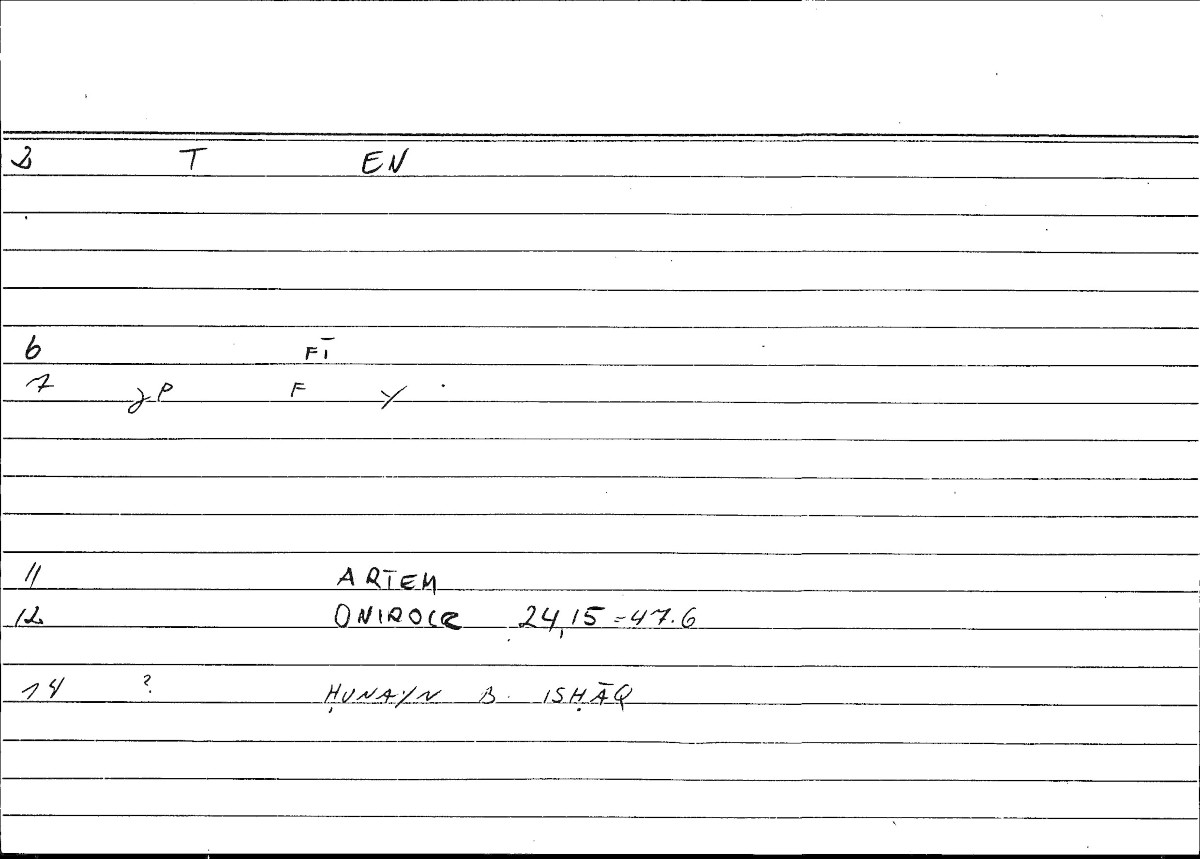 2 T EN
6 FĪ
7 γP F γ
11 ARTEM
12 ONIROCR 24,15=47.6
14 ? ḤUNAYN B. ISḤĀQ